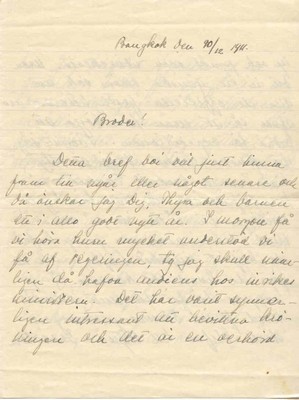 Bangkok den 10/12 1911.
Broder!
Detta bref bör väl just hinna
fram till nyår eller något senare och
då önskar jag Dig, Thyra och barnen
ett i allo godt nytt år. I morgon få
vi höra hur mycket understöd vi
få af regeringen, ty jag skall
då hafva audiens hos inrikes
ministern. Det har varit synner-
ligen intressant att bevittna krö-
ningen och det är en oerhörd